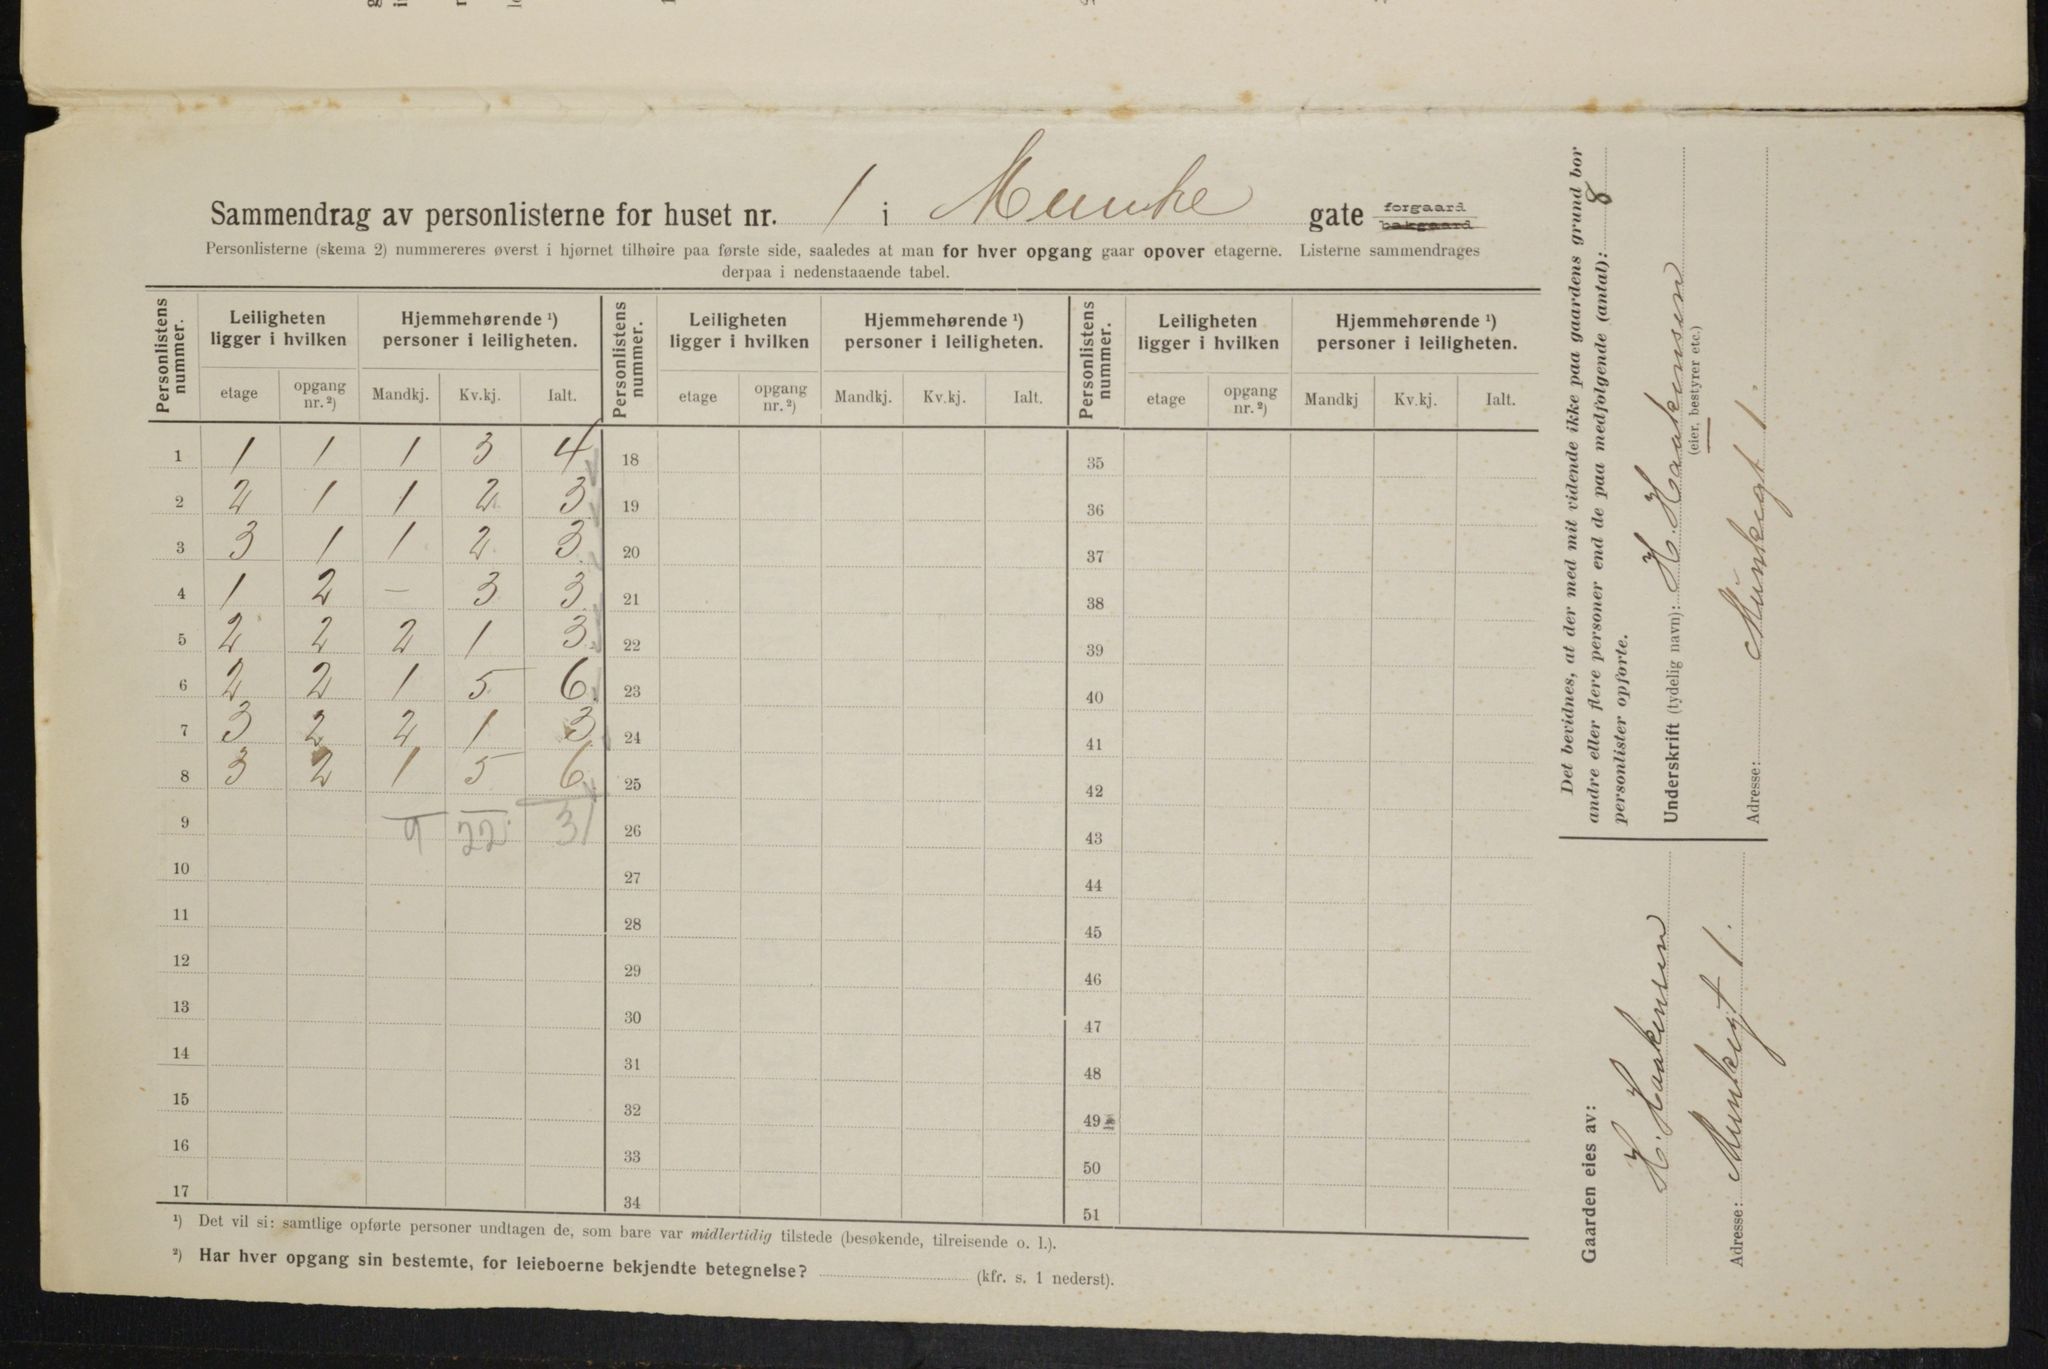 Sammendrag av personlisterne for huset nr. 1 i Munke gate forgaard bakgaard
Personlisterne (skema 2) nummereres øverst i hjørnet tilhøire paa første side, saaledes at man for hver opgang gaar opover etagerne. Listerne sammendrages
derpaa i nedenstaaende tabel.
Personlistens nummer. Leiligheten ligger i hvilken Hjemmehørende ¹) personer i leiligheten. Personlistens nummer. Leiligheten ligger i hvilken Hjemmehørende ¹) personer i leiligheten. Personlistens nummer. Leiligheten ligger i hvilken Hjemmehørende ¹) personer i leiligheten.
etage opgang nr. ²) Mandkj. Kv.kj. Ialt. etage opgang nr. ²) Mandkj. Kv.kj. Ialt. etage opgang nr. ²) Mandkj Kv.kj. Ialt.
1 1 1 1 3 4 18 35
2 2 1 1 2 3 19 36
3 3 1 1 2 3 20 37
4 1 2 – 3 3 21 38
5 2 2 2 1 3 22 39
6 2 2 1 5 6 23 40
7 3 2 2 1 3 24 41
8 3 2 1 5 6 25 42
9 9 22 31 26 43
10 27 44
11 28 45
12 29 46
13 30 47
14 31 48
15 32 49
16 33 50
17 34 51
¹) Det vil si: samtlige opførte personer undtagen de, som bare var midlertidig tilstede (besøkende, tilreisende o. l.).
²) Har hver opgang sin bestemte, for leieboerne bekjendte betegnelse? (kfr. s. 1 nederst).
Det bevidnes, at der med mit vidende ikke paa gaardens grund bor
andre eller flere personer end de paa medfølgende (antal): 8
personlister opførte.
Underskrift (tydelig navn): H. Haakensen
(eier, bestyrer etc.)
Adresse: Munkegt 1.
Gaarden eies av:
H. Haakensen
Adresse: Munkegt 1.